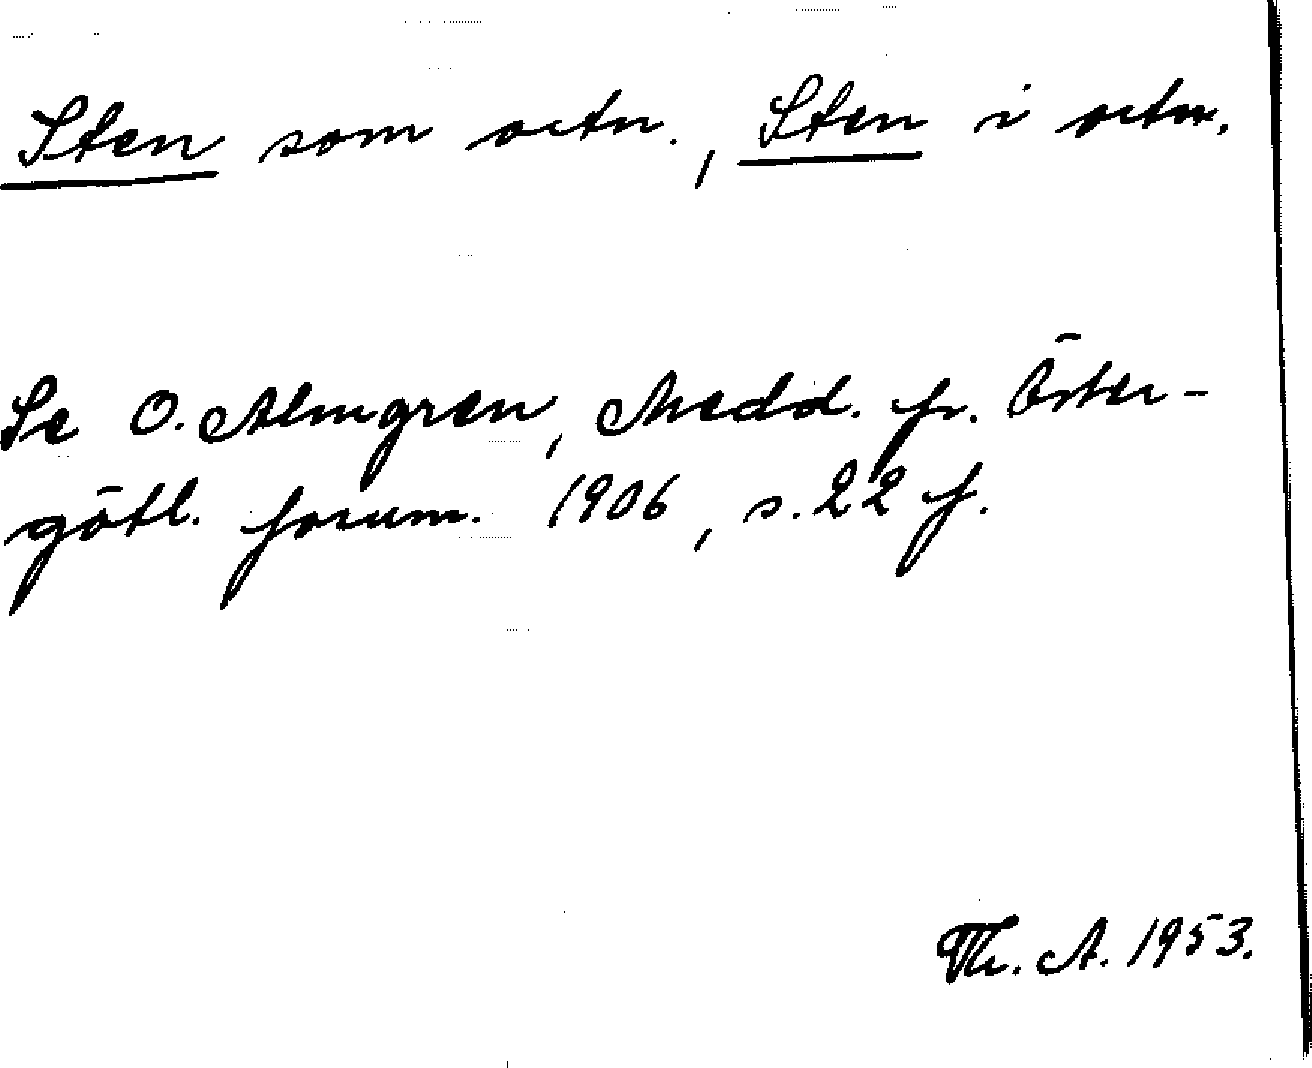 Sten som ortn., Sten i ortn.
Se O. Almgren, Medd. fr. Öster-
götl. fornm. 1906, s. 22 f.
Th. A. 1953.